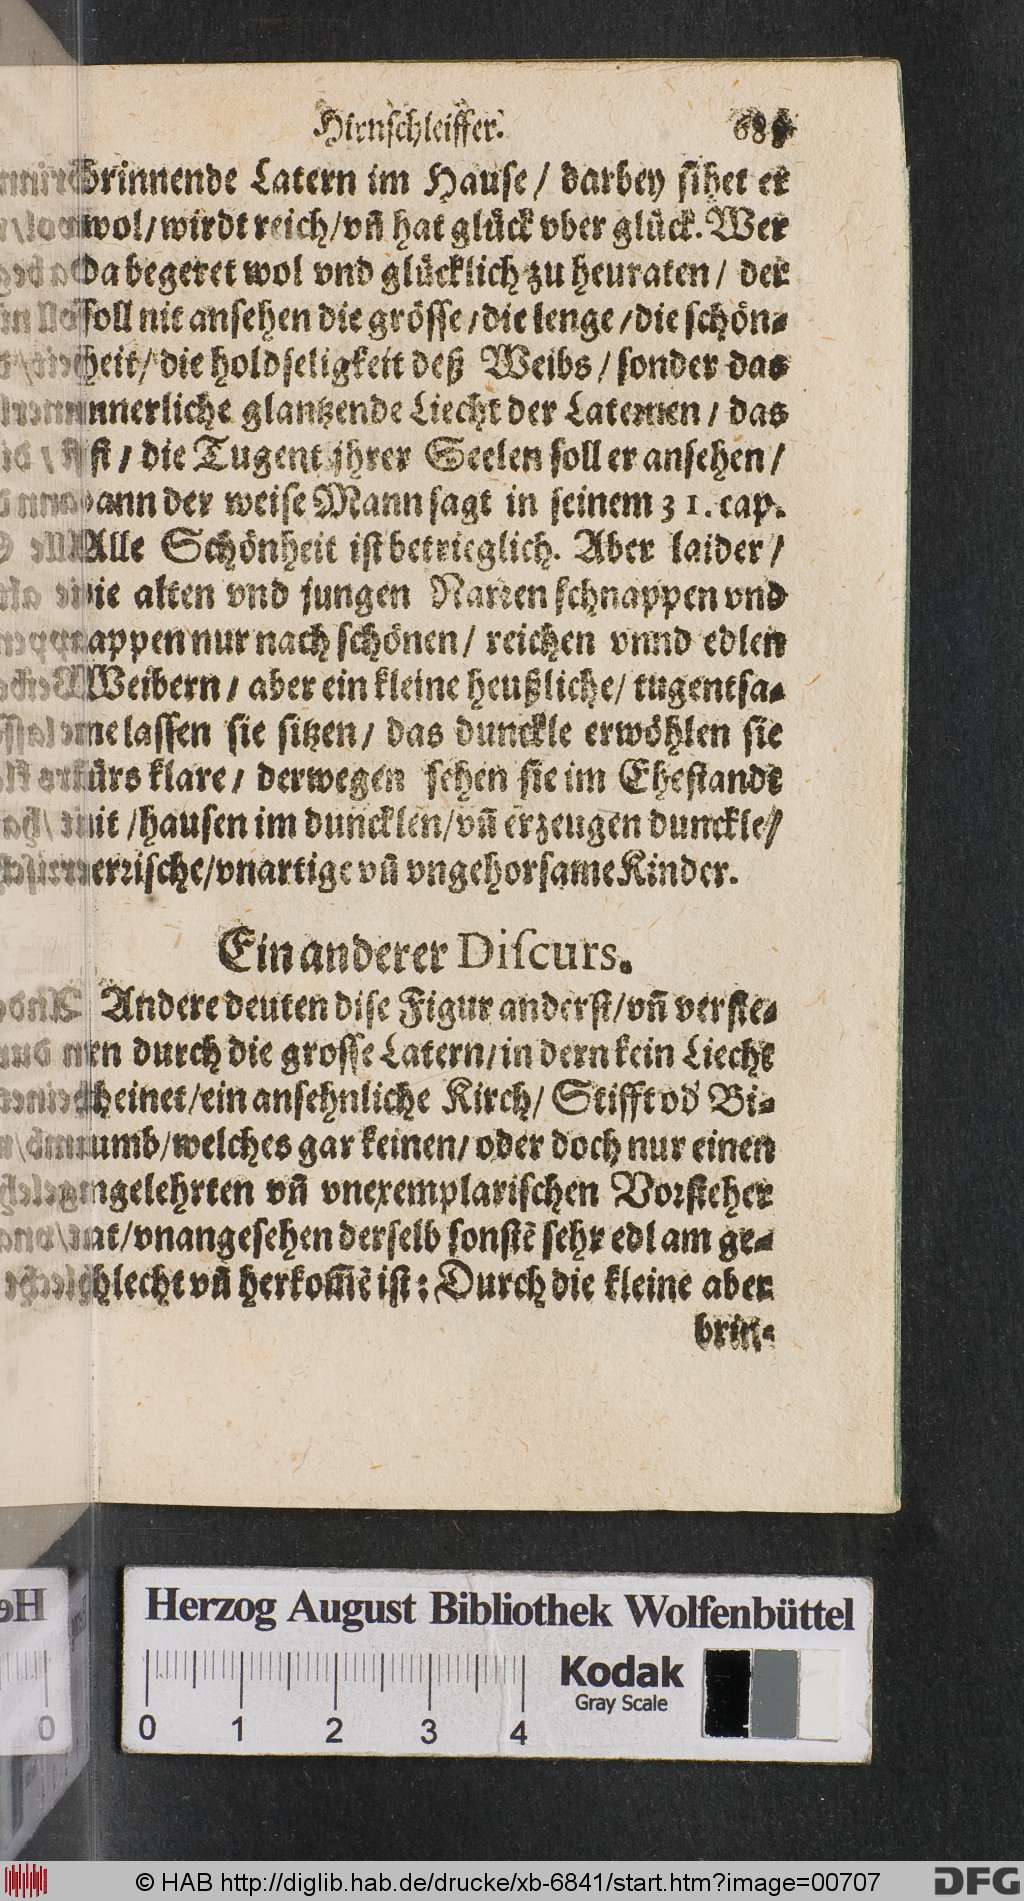 Hirnschleiffer.
brinnende Latern im Hause / darbey sihet er
wol / wirdt reich / vñ hat glück vber glück. Wer
da begeret wol vnd glücklich zu heuraten / der
soll nit ansehen die grösse / die lenge / die schön-
heit / die holdseligkeit deß Weibs / sonder das
innerliche glantzende Liecht der Laternen / das
ist / die Tugent jhrer Seelen soll er ansehen /
dann der weise Mann sagt in seinem 31. cap.
Alle Schönheit ist betrieglich. Aber laider /
die alten vnd jungen Narren schnappen vnd
nappen nur nach schönen / reichen vnnd edlen
Weibern / aber ein kleine heußliche / tugentsa-
me lassen sie sitzen / das dunckle erwöhlen sie
fürs klare / derwegen sehen sie im Ehestandt
nit / hausen im duncklen / vñ erzeugen dunckle /
nerrische / vnartige vñ vngehorsame Kinder.
Ein anderer Discurs.
Andere deuten dise Figur anderst / vñ verste-
hen durch die grosse Latern / in dern kein Liecht
scheinet / ein ansehnliche Kirch / Stifft od' Bi-
stumb / welches gar keinen / oder doch nur einen
vngelehrten vñ vnexemplarischen Vorsteher
hat / vnangesehen derselb sonstẽ sehr edl am ge-
schlecht vñ herkom̃ẽ ist: Durch die kleine aber
brin-
Herzog August Bibliothek Wolfenbüttel
Kodak
Gray Scale
0 1 2 3 4
0
© HAB http://diglib.hab.de/drucke/xb-6841/start.htm?image=00707
DFG